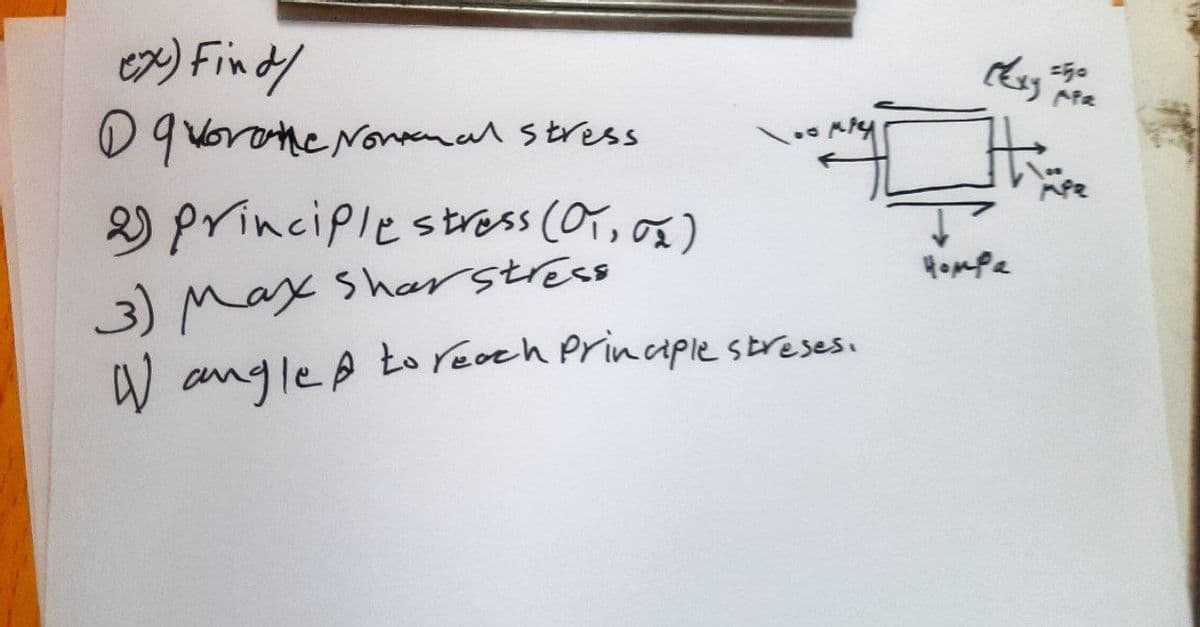 ex) Find/
① avorathe Normal stress
2) principle stress (σ1, σ2)
3) Max shar stress
4) angle to reach Principle streses.
τxy =50 MPa
100 MPa
100 MPa
40MPa